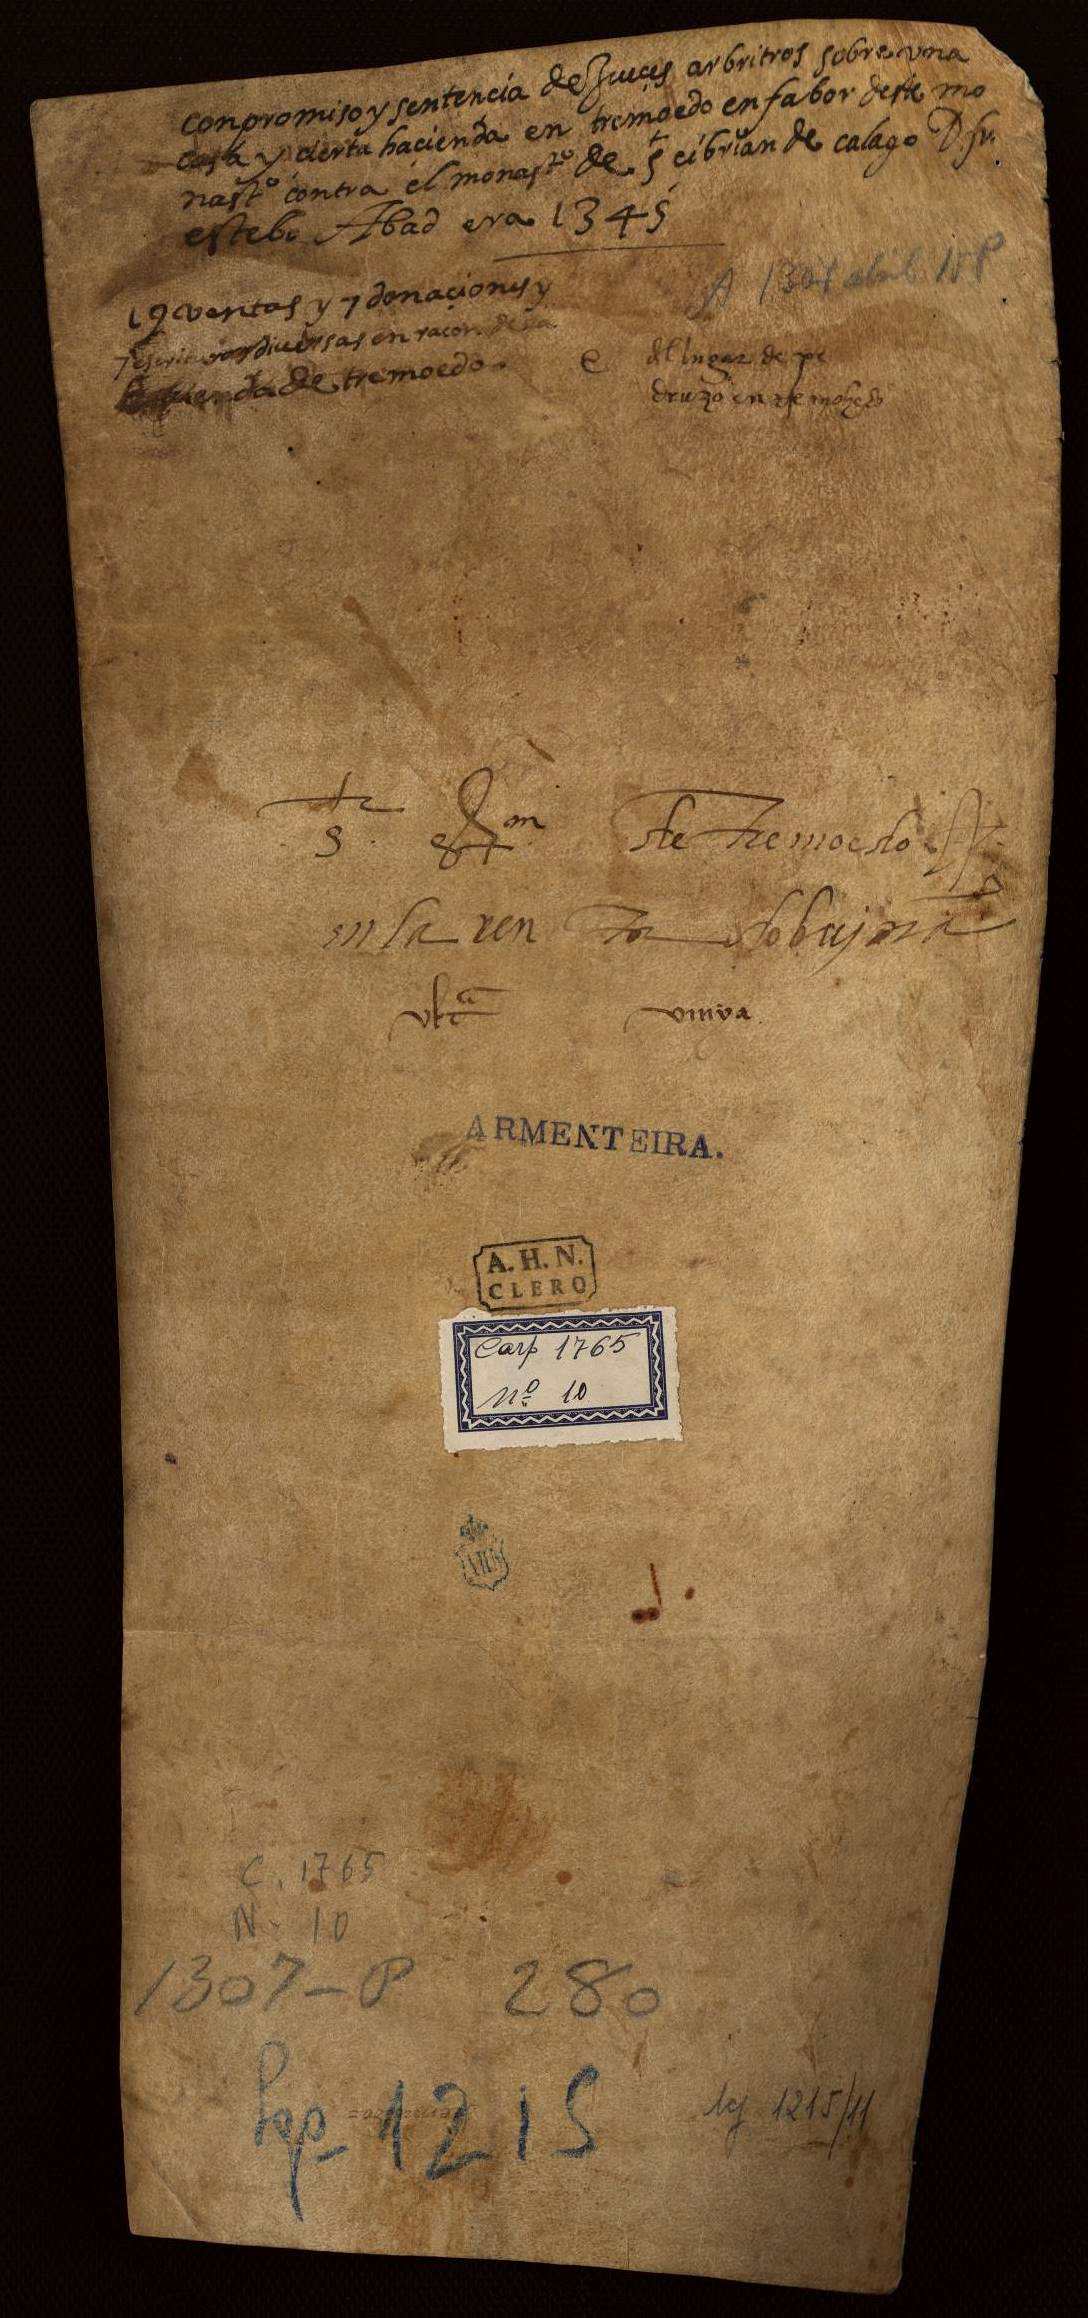 conpromiso y sentencia de Jueçes arbritros sobre vna
casa y cierta hacienda en tremoedo en fabor deste mo
nastº contra el monastº de S cibrian de calago D. fr.
estebo Abad era 1345
A 1307 abril 18 P
19 ventas y 7 donaciones y
7 escrituras diversas en racon de la
hacienda de tremoedo.
e del lugar de pe
druzo en tremohedo
S. de tremoedo
en la
vlta viuva
ARMENTEIRA.
A. H. N.
CLERO
Carp 1765
Nº 10
C. 1765
N. 10
1307-P 280
1215
leg 1215/11